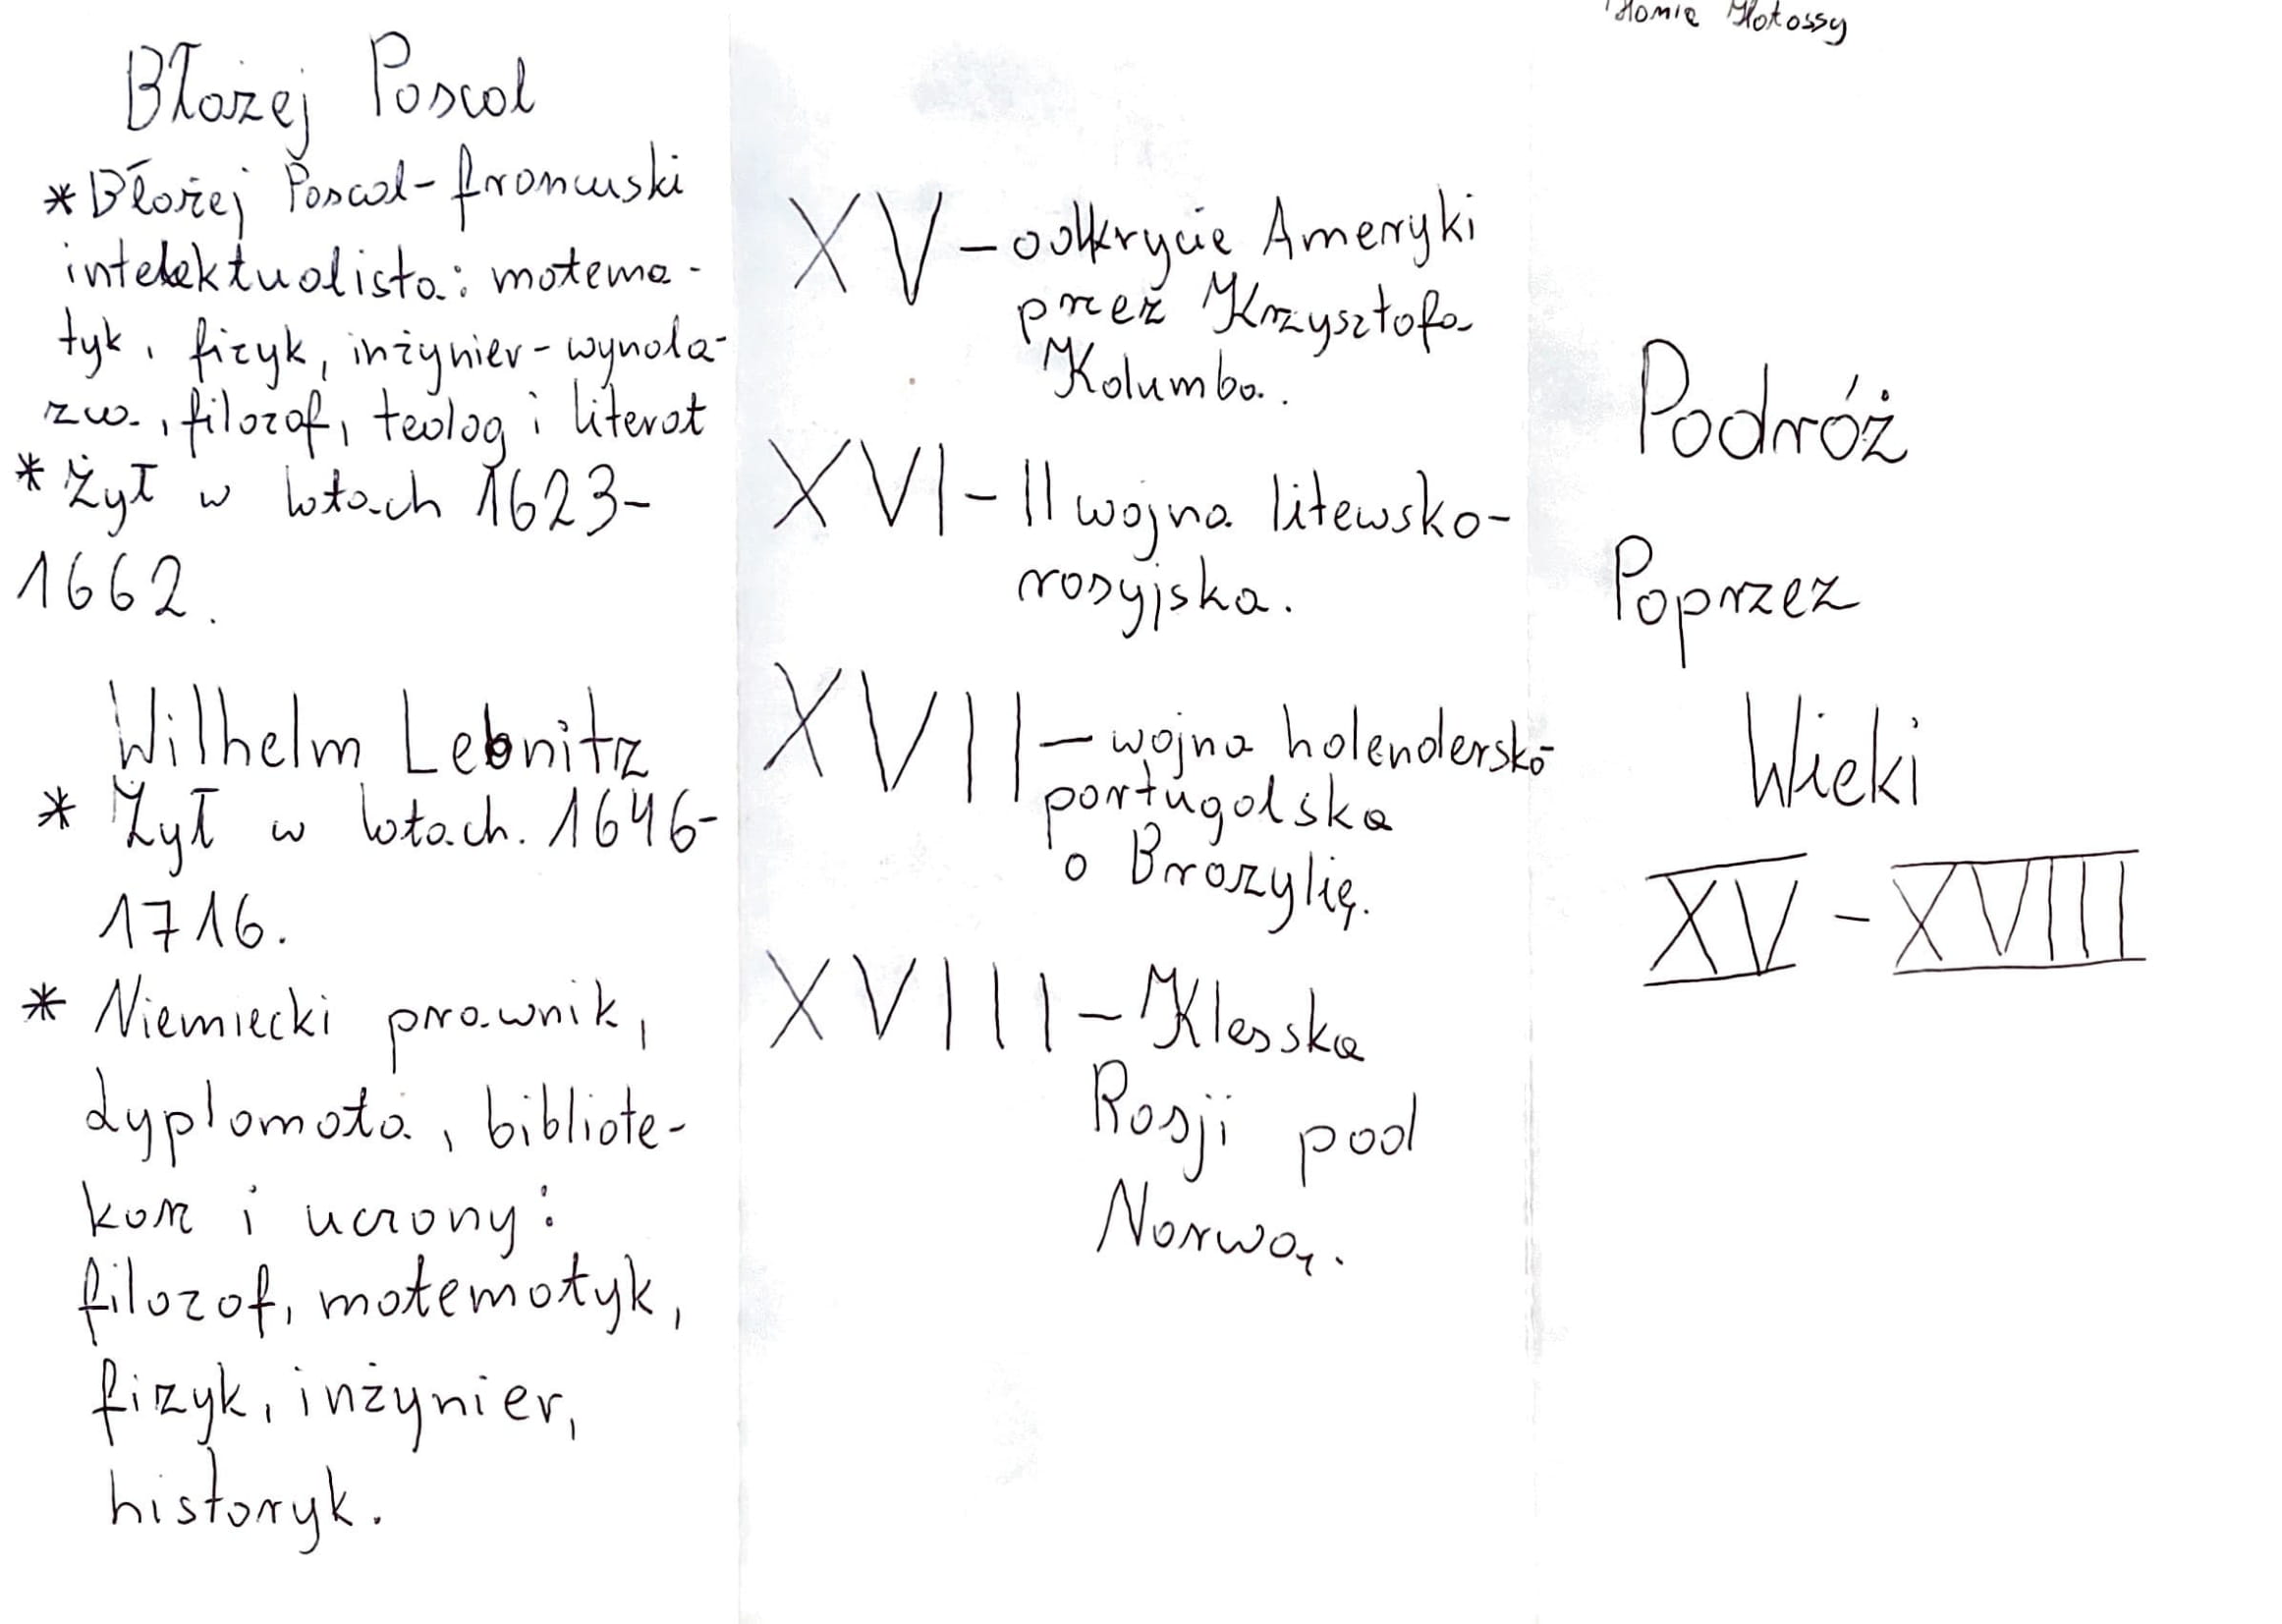 Błażej Pascal
* Błażej Pascal - francuski
intelektualista: matema-
tyk, fizyk, inżynier - wynala-
zca, filozof, teolog i literat
* Żył w latach 1623-
1662.
Wilhelm Lebnitz
* Żył w latach. 1646-
1716.
* Niemiecki prawnik,
dyplomata, bibliote-
karz i uczony:
filozof, matematyk,
fizyk, inżynier,
historyk.
XV - odkrycie Ameryki
przez Krzysztofa
Kolumba..
XVI - II wojna litewsko-
rosyjska.
XVII - wojna holendersko-
portugalska
o Brazylię.
XVIII - Klesska
Rosji pod
Narwą.
Podróż
Poprzez
Wieki
XV - XVIII